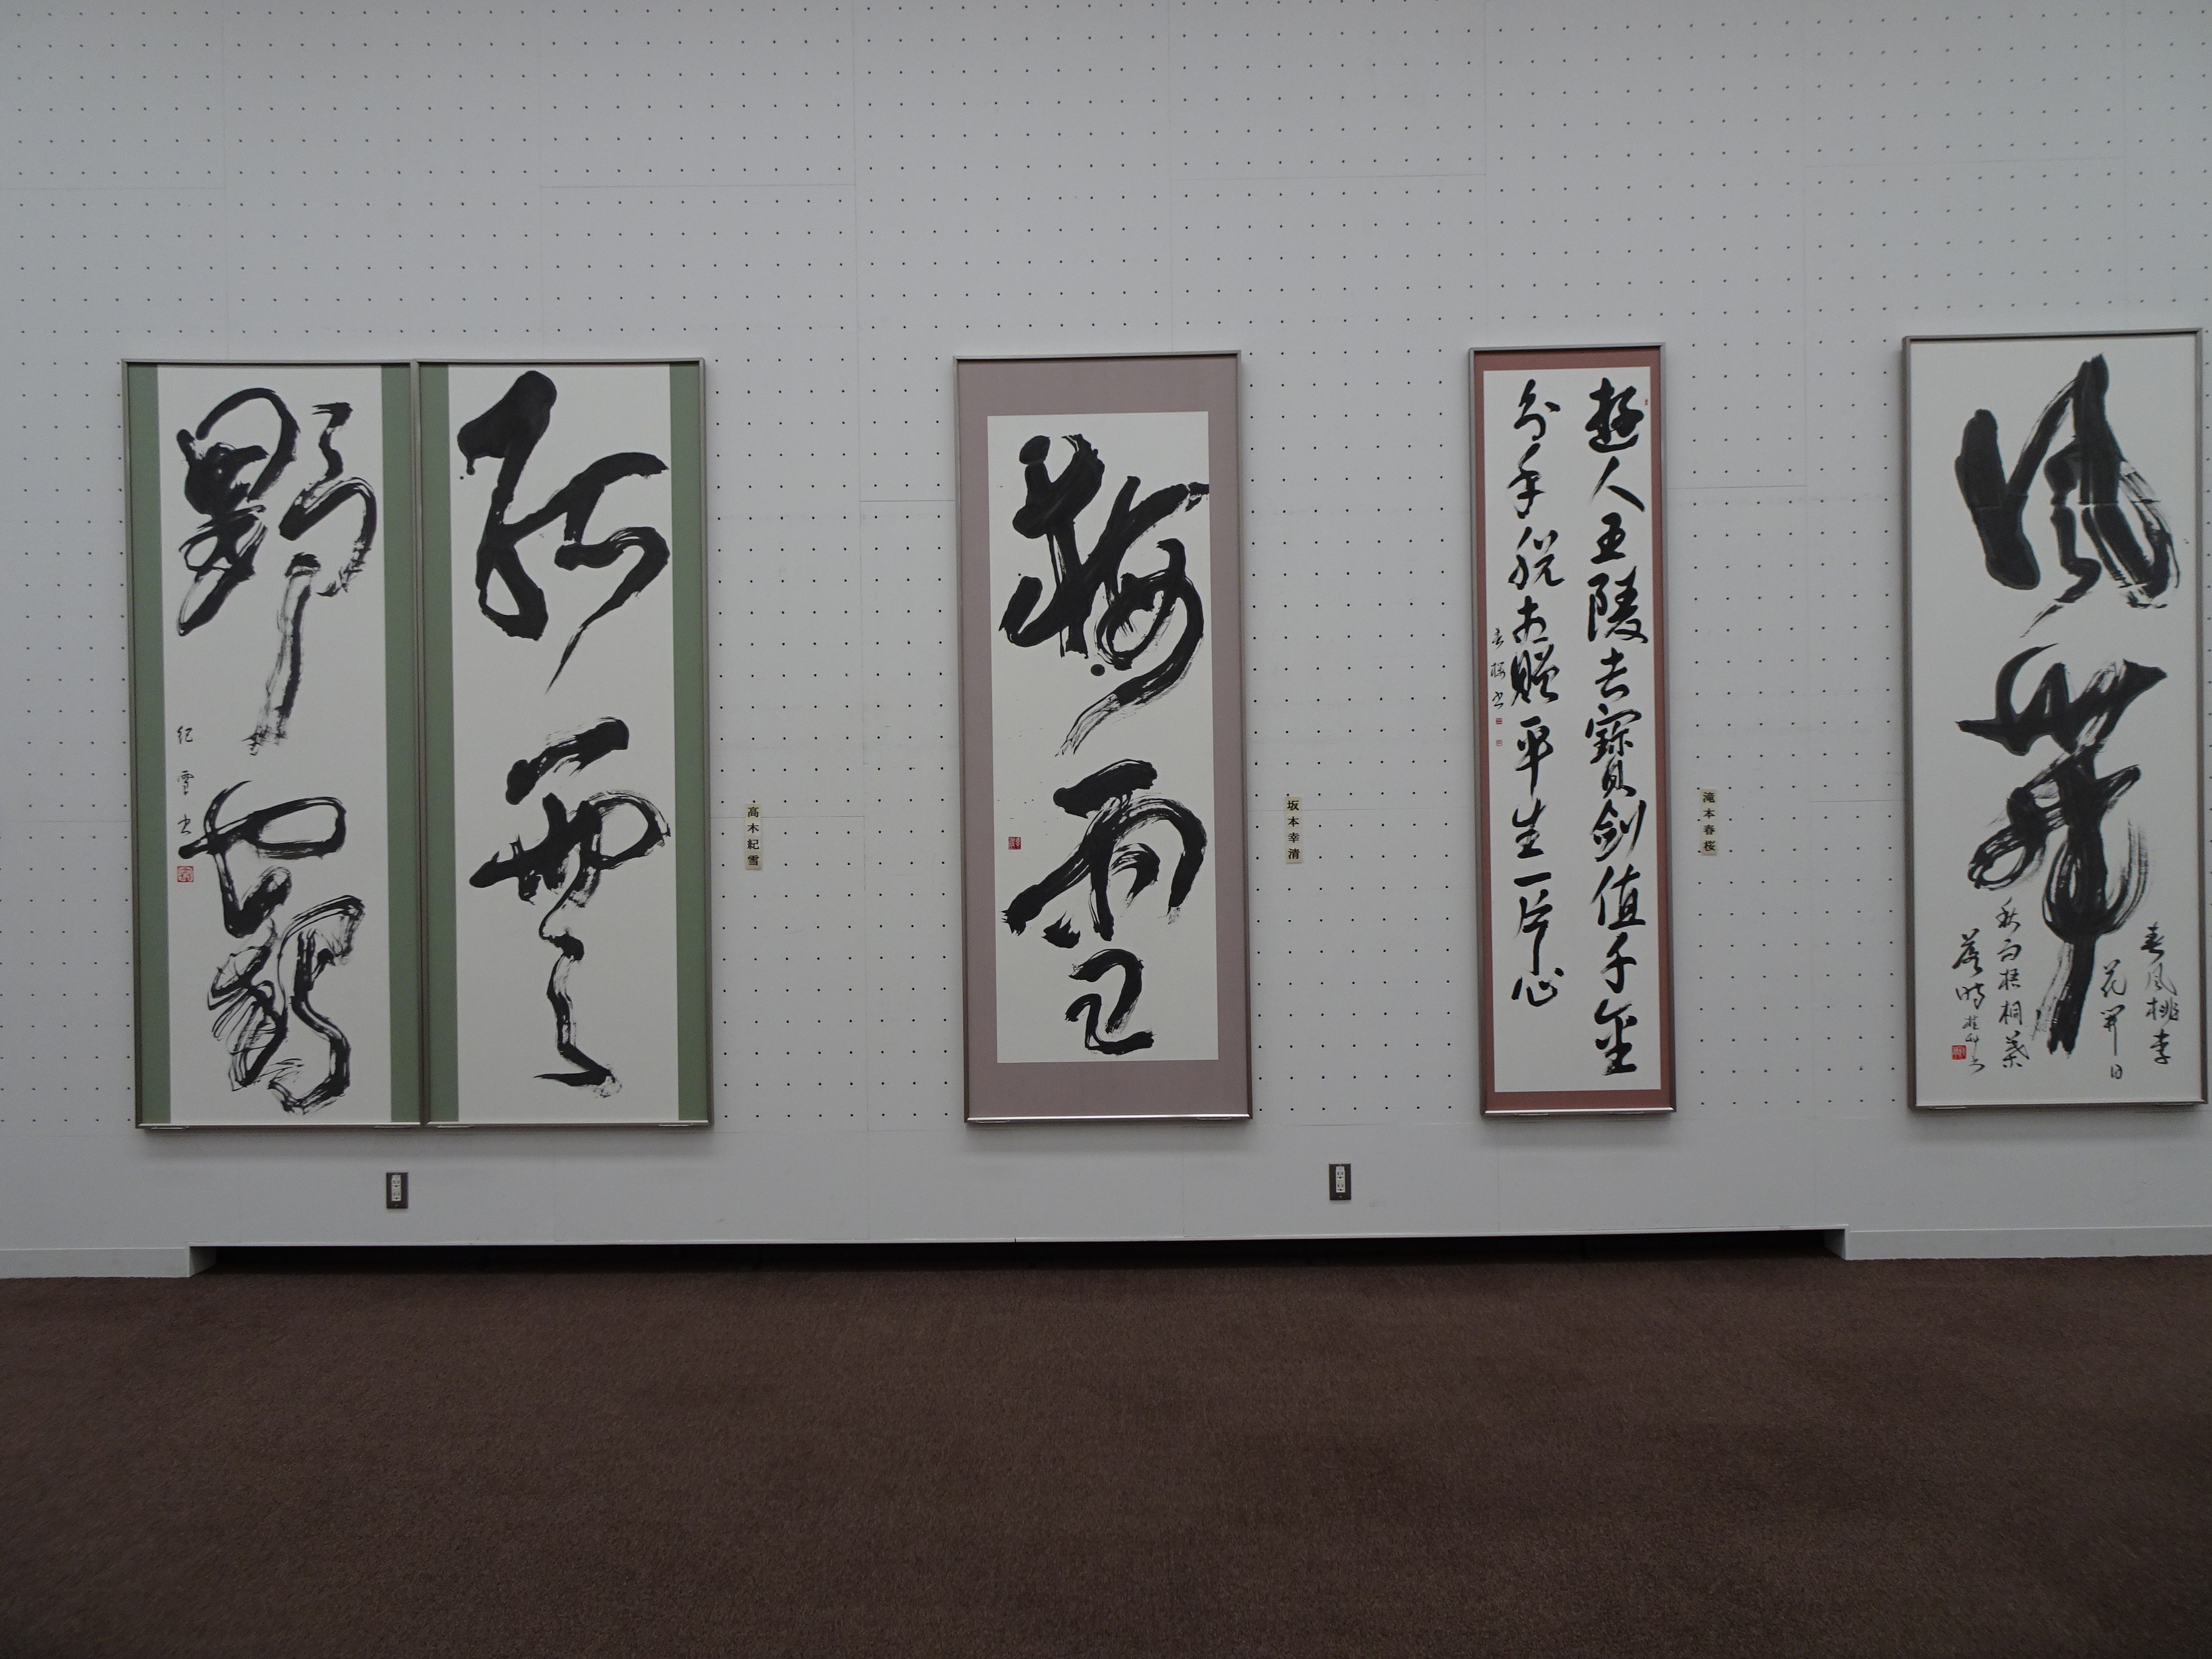 孤雲
野鶴
紀雪書
高木紀雪
梅雨
坂本幸清
遊人五陵去寶劍值千金
分手脱相贈平生一片心
春桜書
滝本春桜
風華
春風桃李
花開日
秋雨梧桐葉
落時